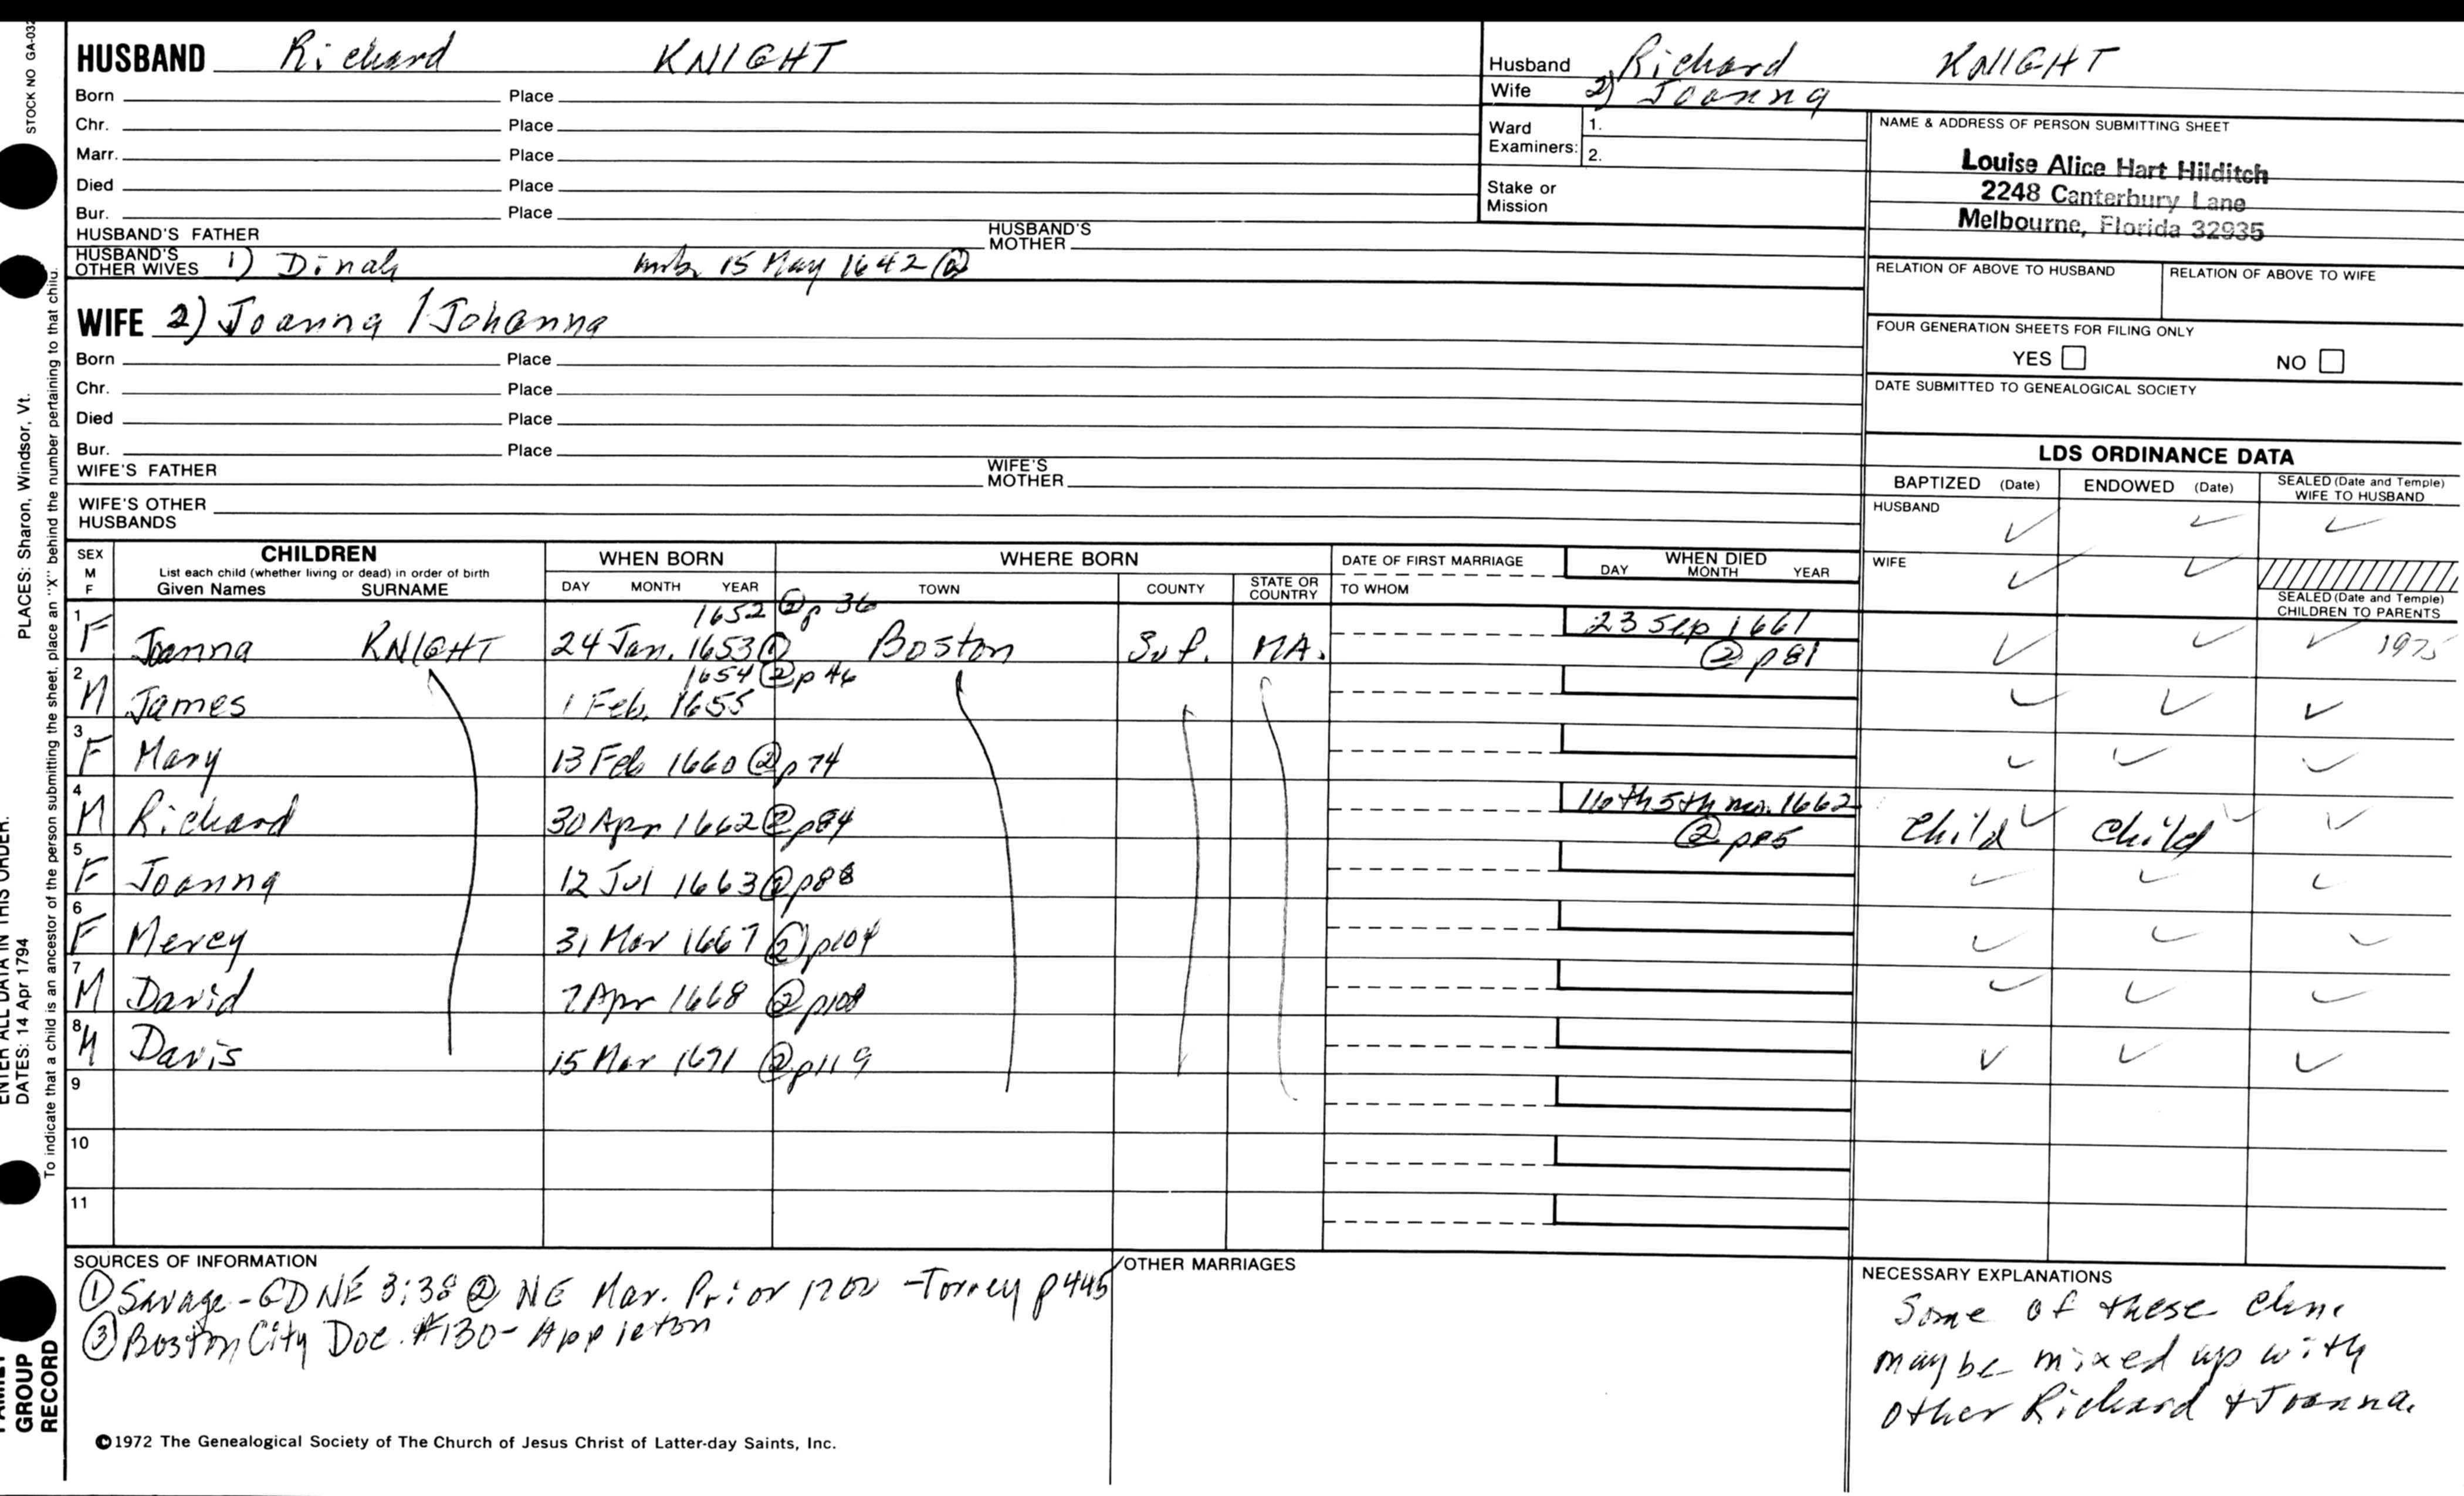 STOCK NO GA-032
HUSBAND Richard KNIGHT
Born Place
Chr. Place
Marr. Place
Died Place
Bur. Place
HUSBAND'S FATHER HUSBAND'S MOTHER
HUSBAND'S OTHER WIVES 1) Dinah 15 May 1642 @
WIFE 2) Joanna / Johanna
Born Place
Chr. Place
Died Place
Bur. Place
WIFE'S FATHER WIFE'S MOTHER
WIFE'S OTHER HUSBANDS
Husband Richard KNIGHT
Wife 2) Joanna
Ward Examiners: 1.
2.
Stake or Mission
NAME & ADDRESS OF PERSON SUBMITTING SHEET
Louise Alice Hart Hilditch
2248 Canterbury Lane
Melbourne, Florida 32935
RELATION OF ABOVE TO HUSBAND RELATION OF ABOVE TO WIFE
FOUR GENERATION SHEETS FOR FILING ONLY
YES NO
DATE SUBMITTED TO GENEALOGICAL SOCIETY
LDS ORDINANCE DATA
BAPTIZED (Date) ENDOWED (Date) SEALED (Date and Temple) WIFE TO HUSBAND
HUSBAND ✓ ✓ ✓
WIFE ✓ ✓
SEALED (Date and Temple) CHILDREN TO PARENTS
SEX M F CHILDREN WHEN BORN WHERE BORN DATE OF FIRST MARRIAGE WHEN DIED
List each child (whether living or dead) in order of birth
Given Names SURNAME DAY MONTH YEAR TOWN COUNTY STATE OR COUNTRY TO WHOM DAY MONTH YEAR
1652 ② p 36
1 F Joanna KNIGHT 24 Jan. 1653 ① Boston Suf. MA. 23 Sep 1661 ② p 81 ✓ ✓ ✓ 1975
1654 ② p 46
2 M James 1 Feb. 1655 ✓ ✓ ✓
3 F Mary 13 Feb 1660 ② p 74 ✓ ✓ ✓
4 M Richard 30 Apr 1662 ② p84 5th mo. 1662 ② p85 Child ✓ Child ✓ ✓
5 F Joanna 12 Jul 1663 ② p88 ✓ ✓ ✓
6 F Mercy 31 Mar 1667 ② p104 ✓ ✓ ✓
7 M David 7 Apr 1668 ② p108 ✓ ✓ ✓
8 M Davis 15 Mar 1671 ② p119 ✓ ✓ ✓
9
10
11
SOURCES OF INFORMATION
① Savage - GDNE 3:38 ② NE Mar. Prior 1700 - Torrey p 445
③ Boston City Doc. #130 - Appleton
OTHER MARRIAGES
NECESSARY EXPLANATIONS
Some of these
may be mixed up with
other Richard & Joanna.
©1972 The Genealogical Society of The Church of Jesus Christ of Latter-day Saints, Inc.
ENTER ALL DATA IN THIS ORDER.
PLACES: Sharon, Windsor, Vt.
DATES: 14 Apr 1794
To indicate that a child is an ancestor of the person submitting the sheet, place an "X" behind the number pertaining to that child.
FAMILY
GROUP
RECORD